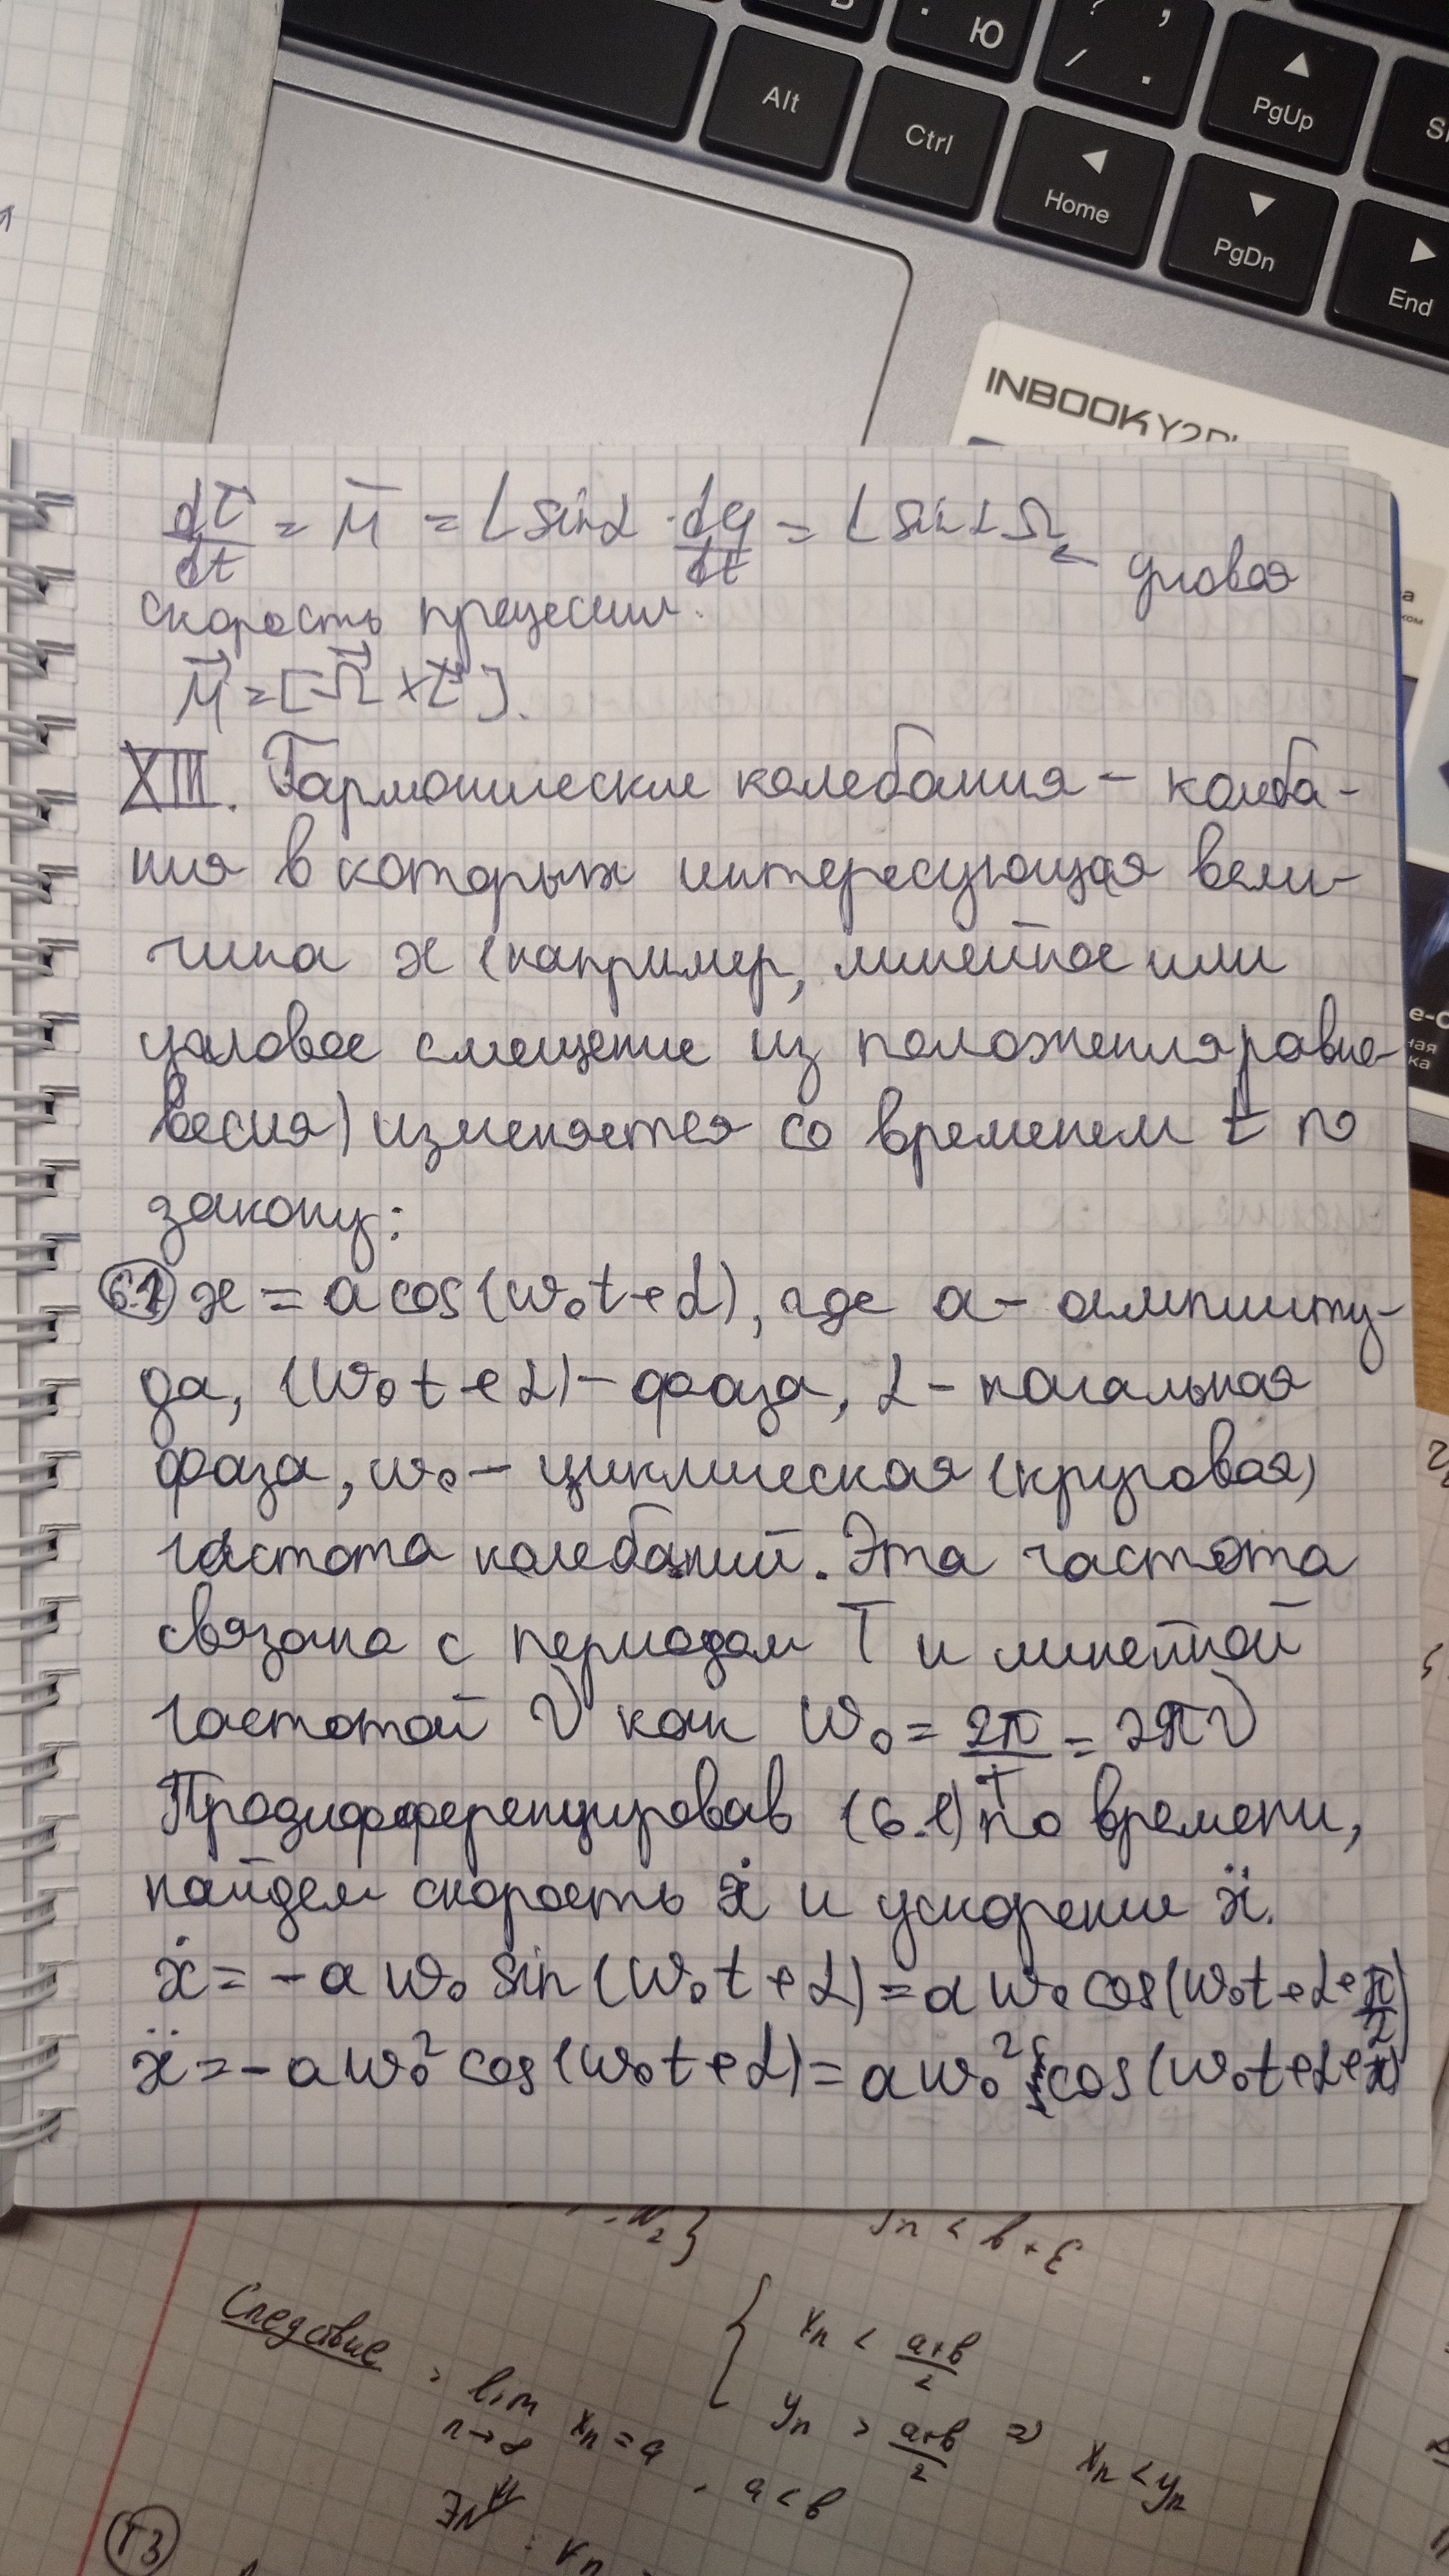 Ю
Alt
Ctrl
Home
PgUp
PgDn
End
INBOOK Y2P
dL/dt = M = L sinα · dφ/dt = L sinα Ω ← угловая
скорость прецессии.
M⃗ = [Ω⃗ × L⃗].
XIII. Гармонические колебания – колеба-
ния в которых интересующая вели-
чина x (например, линейное или
угловое смещение из положения равно-
весия) изменяется со временем t по
закону:
6.1 x = a cos(ω₀t + α), где a – амплиту-
да, (ω₀t + α) – фаза, α – начальная
фаза, ω₀ – циклическая (круговая)
частота колебаний. Эта частота
связана с периодом T и линейной
частотой ν как ω₀ = 2π/T = 2πν
Продифференцировав (6.1) по времени,
найдем скорость ẋ и ускорение ẍ.
ẋ = –aω₀ sin(ω₀t + α) = aω₀ cos(ω₀t + α + π/2)
ẍ = –aω₀² cos(ω₀t + α) = aω₀² cos(ω₀t + α + π)
yn < b + ε
Следствие
lim xn = a
n→∞
a < b
xn < (a+b)/2
yn > (a+b)/2 ⇒ xn < yn
∃N
T3